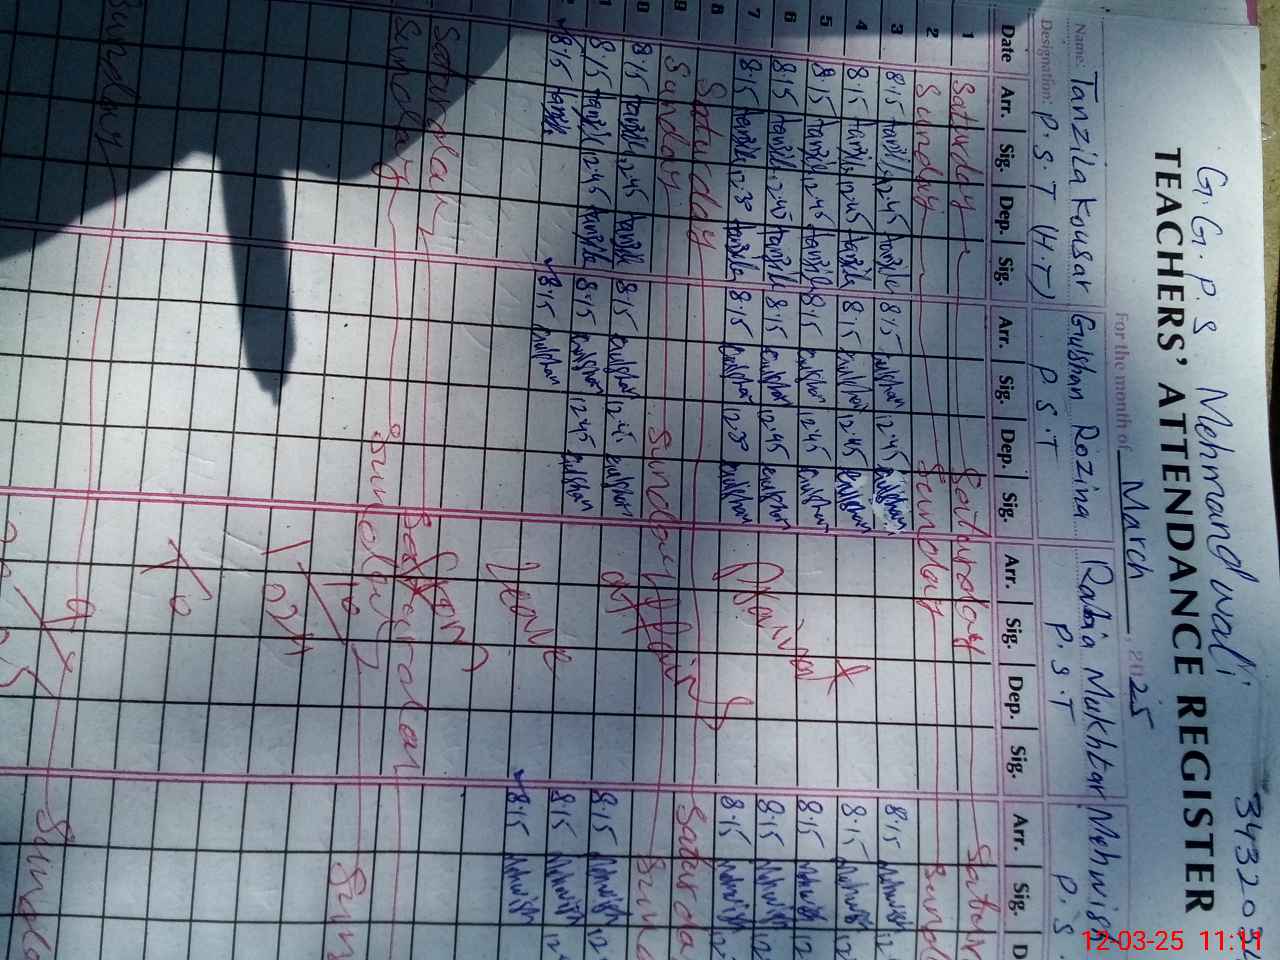 G.G.P.S Mehmand wali
TEACHERS' ATTENDANCE REGISTER
For the month of March 2025
Name: Tanzila Kousar Gulshan Rozina Rabia Mukhtar Mehwish
Designation: P.S.T (H.T) P S.T P.S.T P.S
Date Arr. Sig. Dep. Sig. Arr. Sig. Dep. Sig. Arr. Sig. Dep. Sig. Arr. Sig. D
1 Saturday Saturday Satur
2 Sunday Sunday Sund
3 8:15 Tanzila 12:45 Tanzila 8:15 Gulshan 12:45 Gulshan 8:15 Mehwish 12
4 8:15 Tanzila 12:45 Tanzila 8:15 Gulshan 12:45 Gulshan 8:15 Mehwish 12
5 8:15 Tanzila 12:45 Tanzila 8:15 Gulshan 12:45 Gulshan 8:15 Mehwish 12
6 8:15 Tanzila 12:45 Tanzila 8:15 Gulshan 12:45 Gulshan 8:15 Mehwish 12
7 8:15 Tanzila 12:30 Tanzila 8:15 Gulshan 12:30 Gulshan 8:15 Mehwish 12
8 Saturday Saturda
9 Sunday Sunday Sund
8:15 Tanzila 12:45 Tanzila 8:15 Gulshan 12:45 Gulshan 8:15 Mehwish 12
8:15 Tanzila 12:45 Tanzila 8:15 Gulshan 12:45 Gulshan 8:15 Mehwish 12
8:15 Tanzila 8:15 Gulshan Leave 8:15 Mehwish
Saturday Saturday
Sunday Sunday Sun
To
Sunday Sunda
12-03-25 11:11